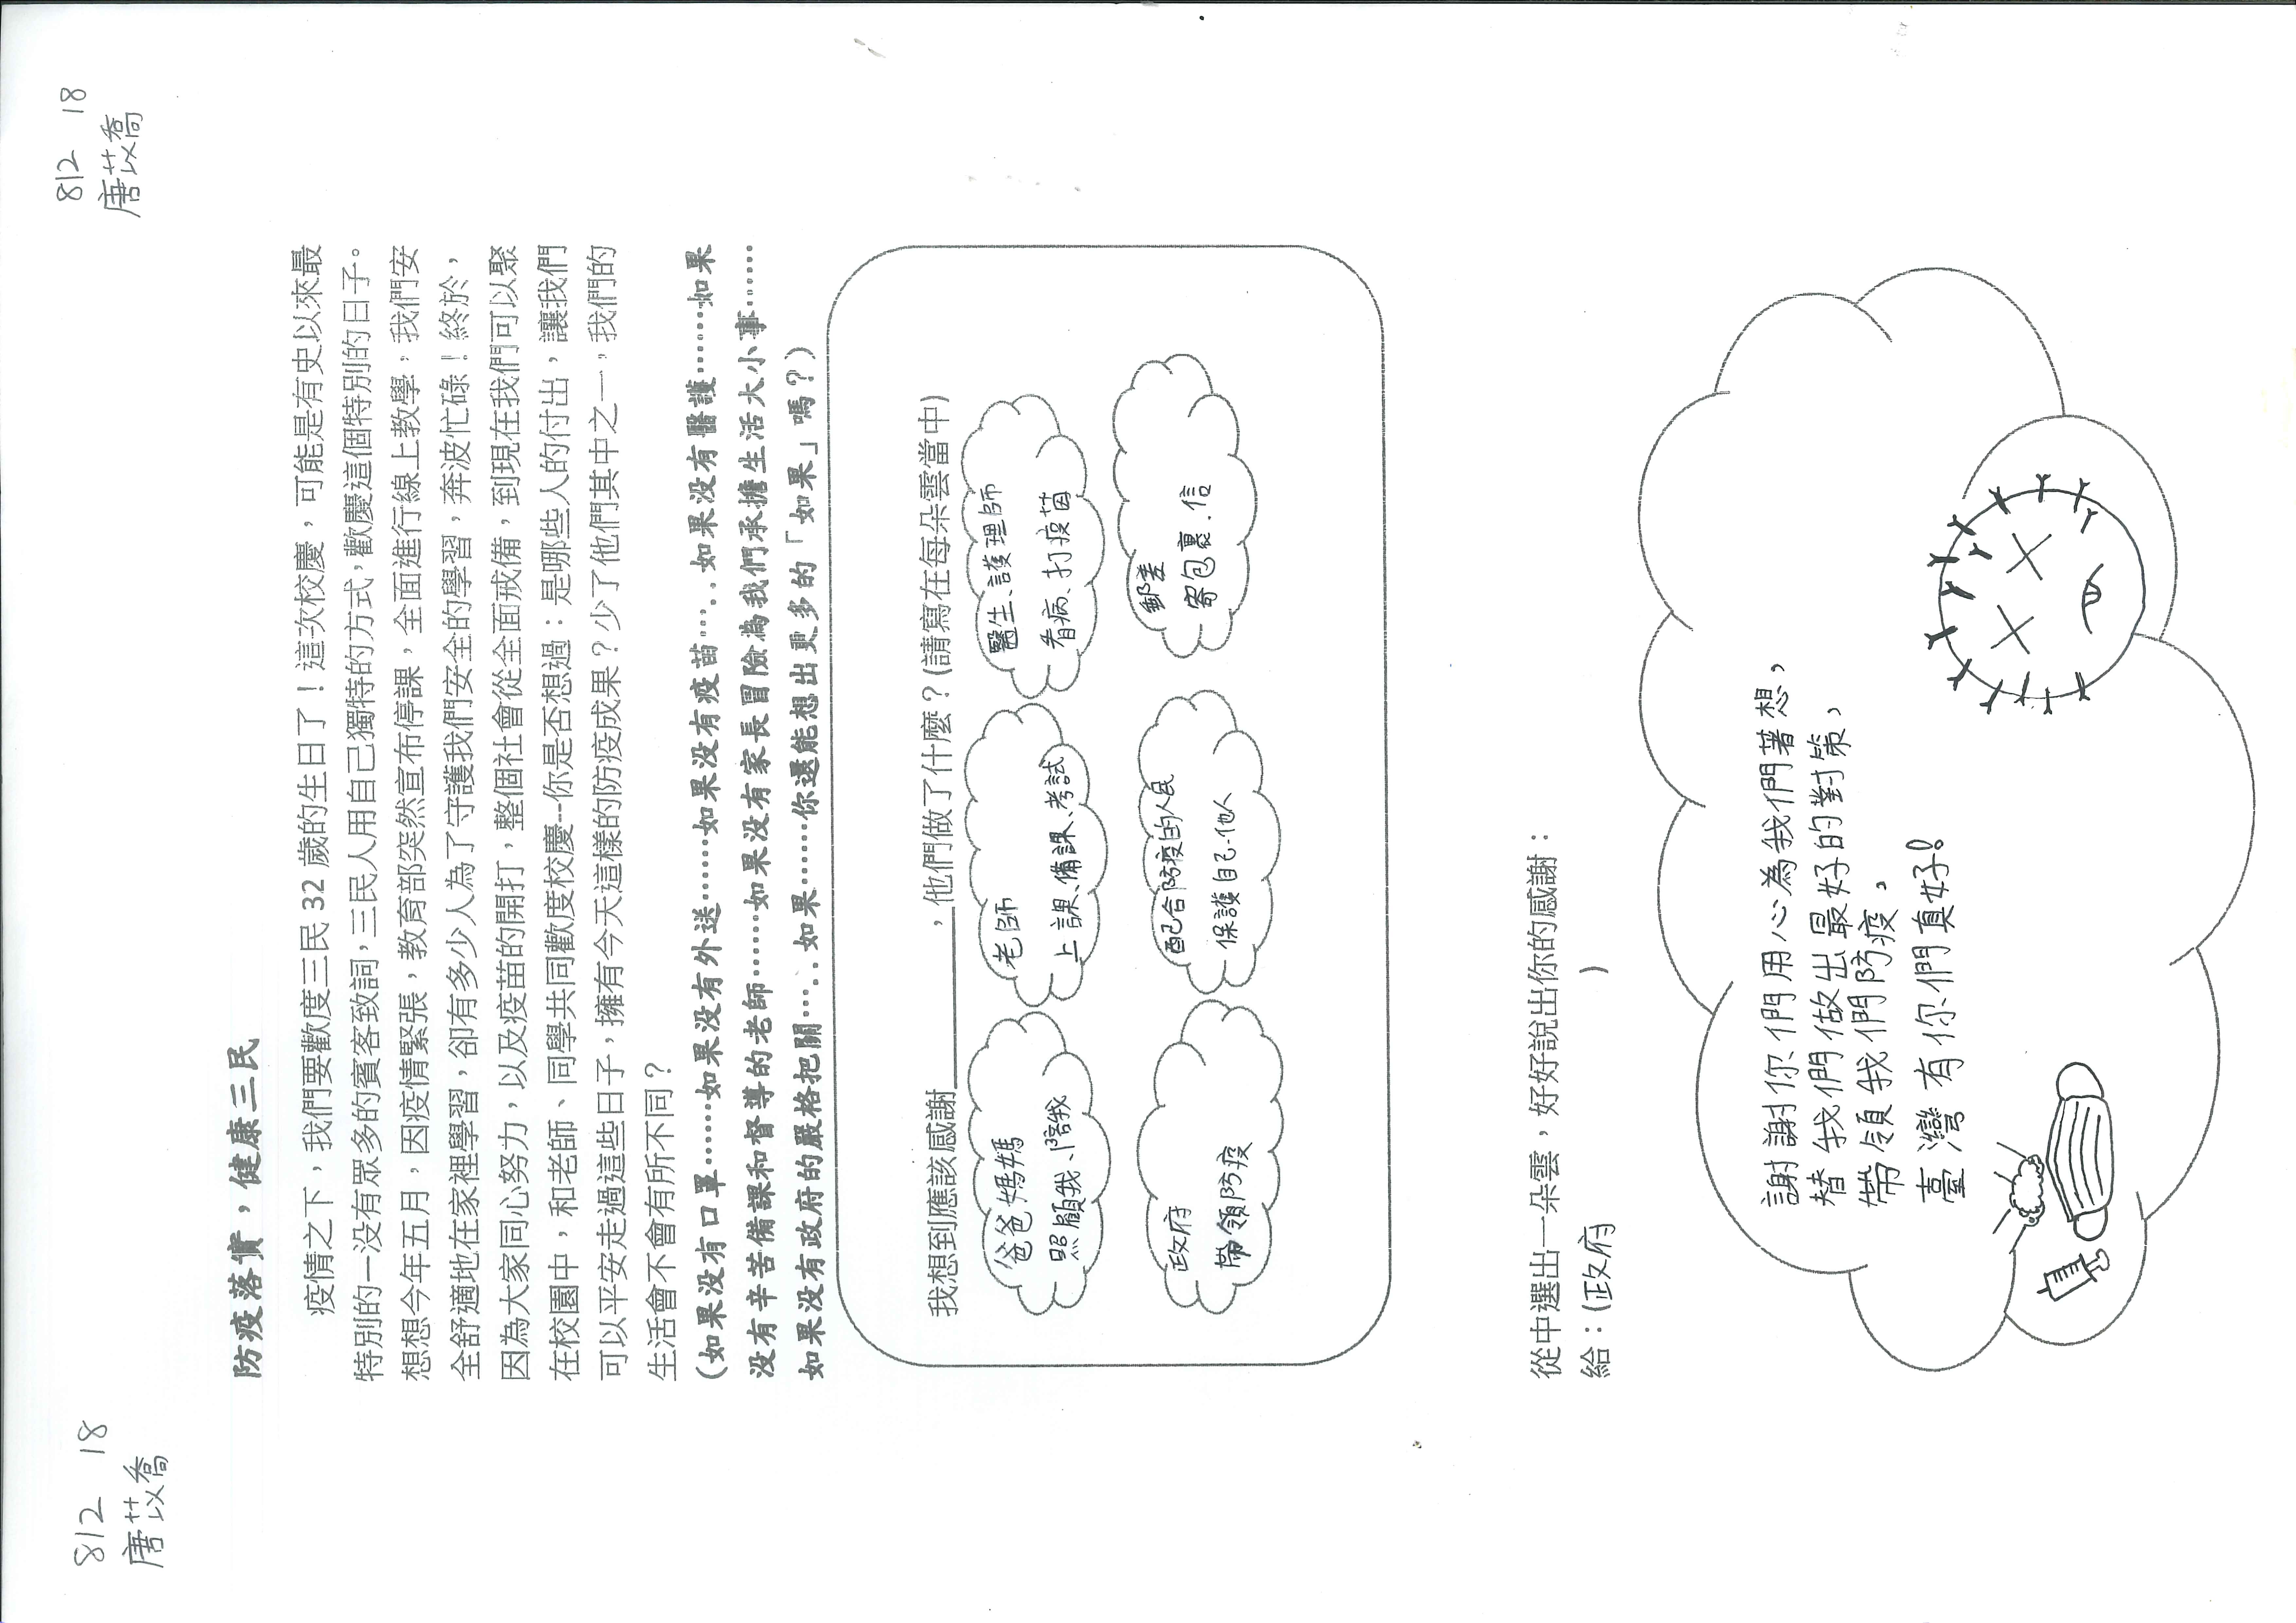 812 18
唐苡喬
812 18
唐苡喬
防疫落實，健康三民
疫情之下，我們要歡度三民 32 歲的生日了！這次校慶，可能是有史以來最
特別的一沒有眾多的賓客致詞，三民人用自己獨特的方式，歡慶這個特別的日子。
想想今年五月，因疫情緊張，教育部突然宣布停課，全面進行線上教學，我們安
全舒適地在家裡學習，卻有多少人為了守護我們安全的學習，奔波忙碌！終於，
因為大家同心努力，以及疫苗的開打，整個社會從全面戒備，到現在我們可以聚
在校園中，和老師、同學共同歡度校慶--你是否想過：是哪些人的付出，讓我們
可以平安走過這些日子，擁有今天這樣的防疫成果？少了他們其中之一，我們的
生活會不會有所不同？
(如果沒有口罩……如果沒有外送……如果沒有疫苗…..如果沒有醫護……如果
沒有辛苦備課和督導的老師……如果沒有家長冒險為我們承擔生活大小事……
如果沒有政府的嚴格把關…..如果……你還能想出更多的「如果」嗎？)
我想到應該感謝________，他們做了什麼？(請寫在每朵雲當中)
爸爸媽媽
照顧我、陪我
老師
上課、備課、考試
醫生、護理師
看病、打疫苗
政府
帶領防疫
配合防疫的人民
保護自己、他人
郵差
寄包裹、信
從中選出一朵雲，好好說出你的感謝：
給：(政府 )
謝謝你們用心為我們著想，
替我們做出最好的對策，
帶領我們防疫，
臺灣有你們真好！